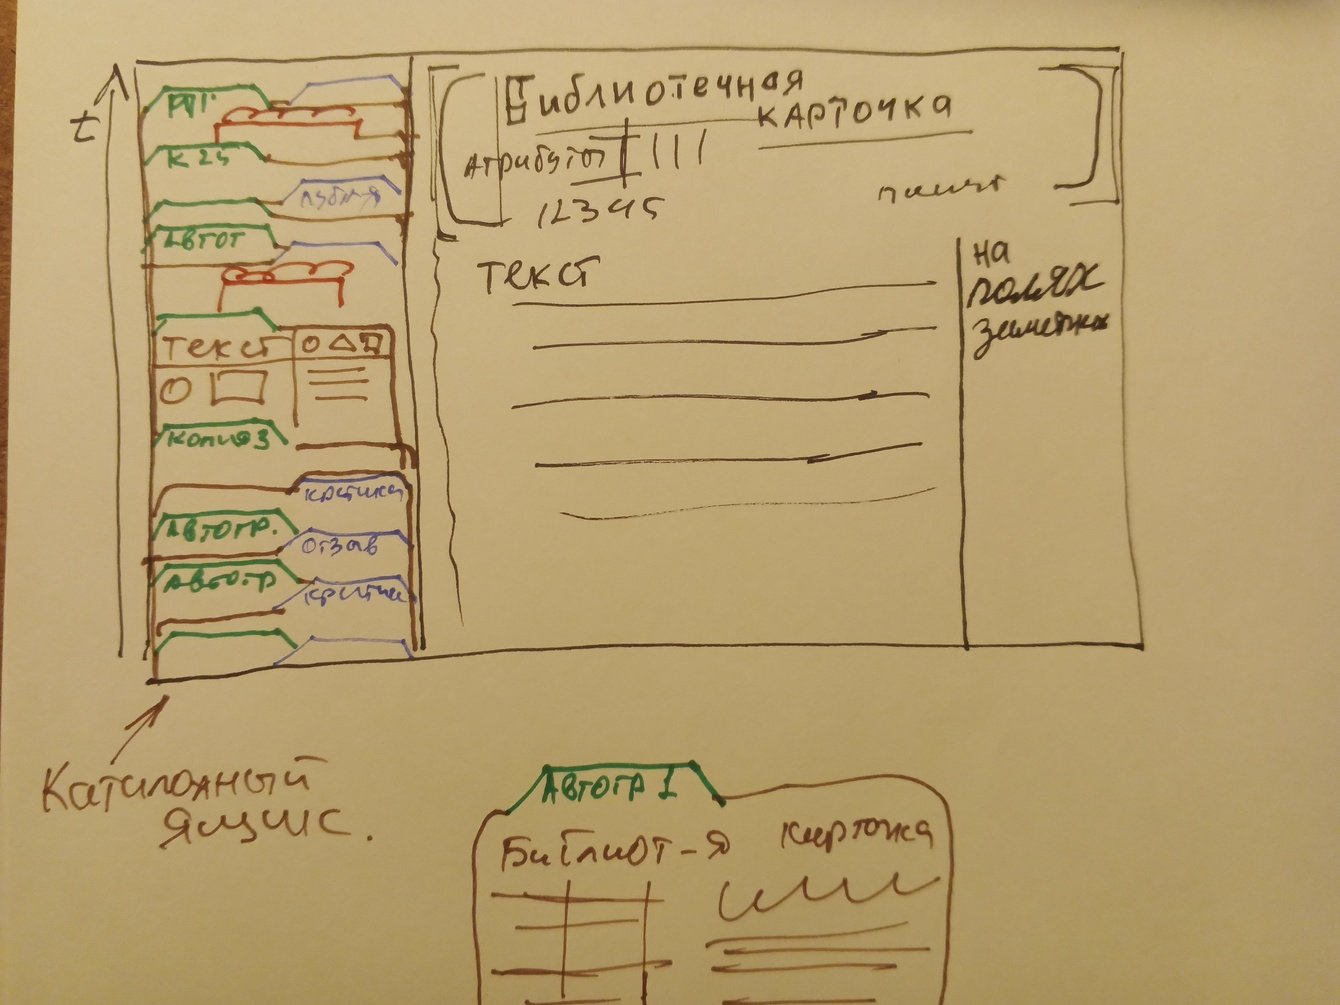 t
К 25
Автог
текст
Копия 3
критика
Автогр.
отзыв
Автогр
Библиотечная
карточка
Атрибуты
12345
текст
на
полях
заметки
Каталожный
ящик.
Автогр 1
Библиот-я карточка